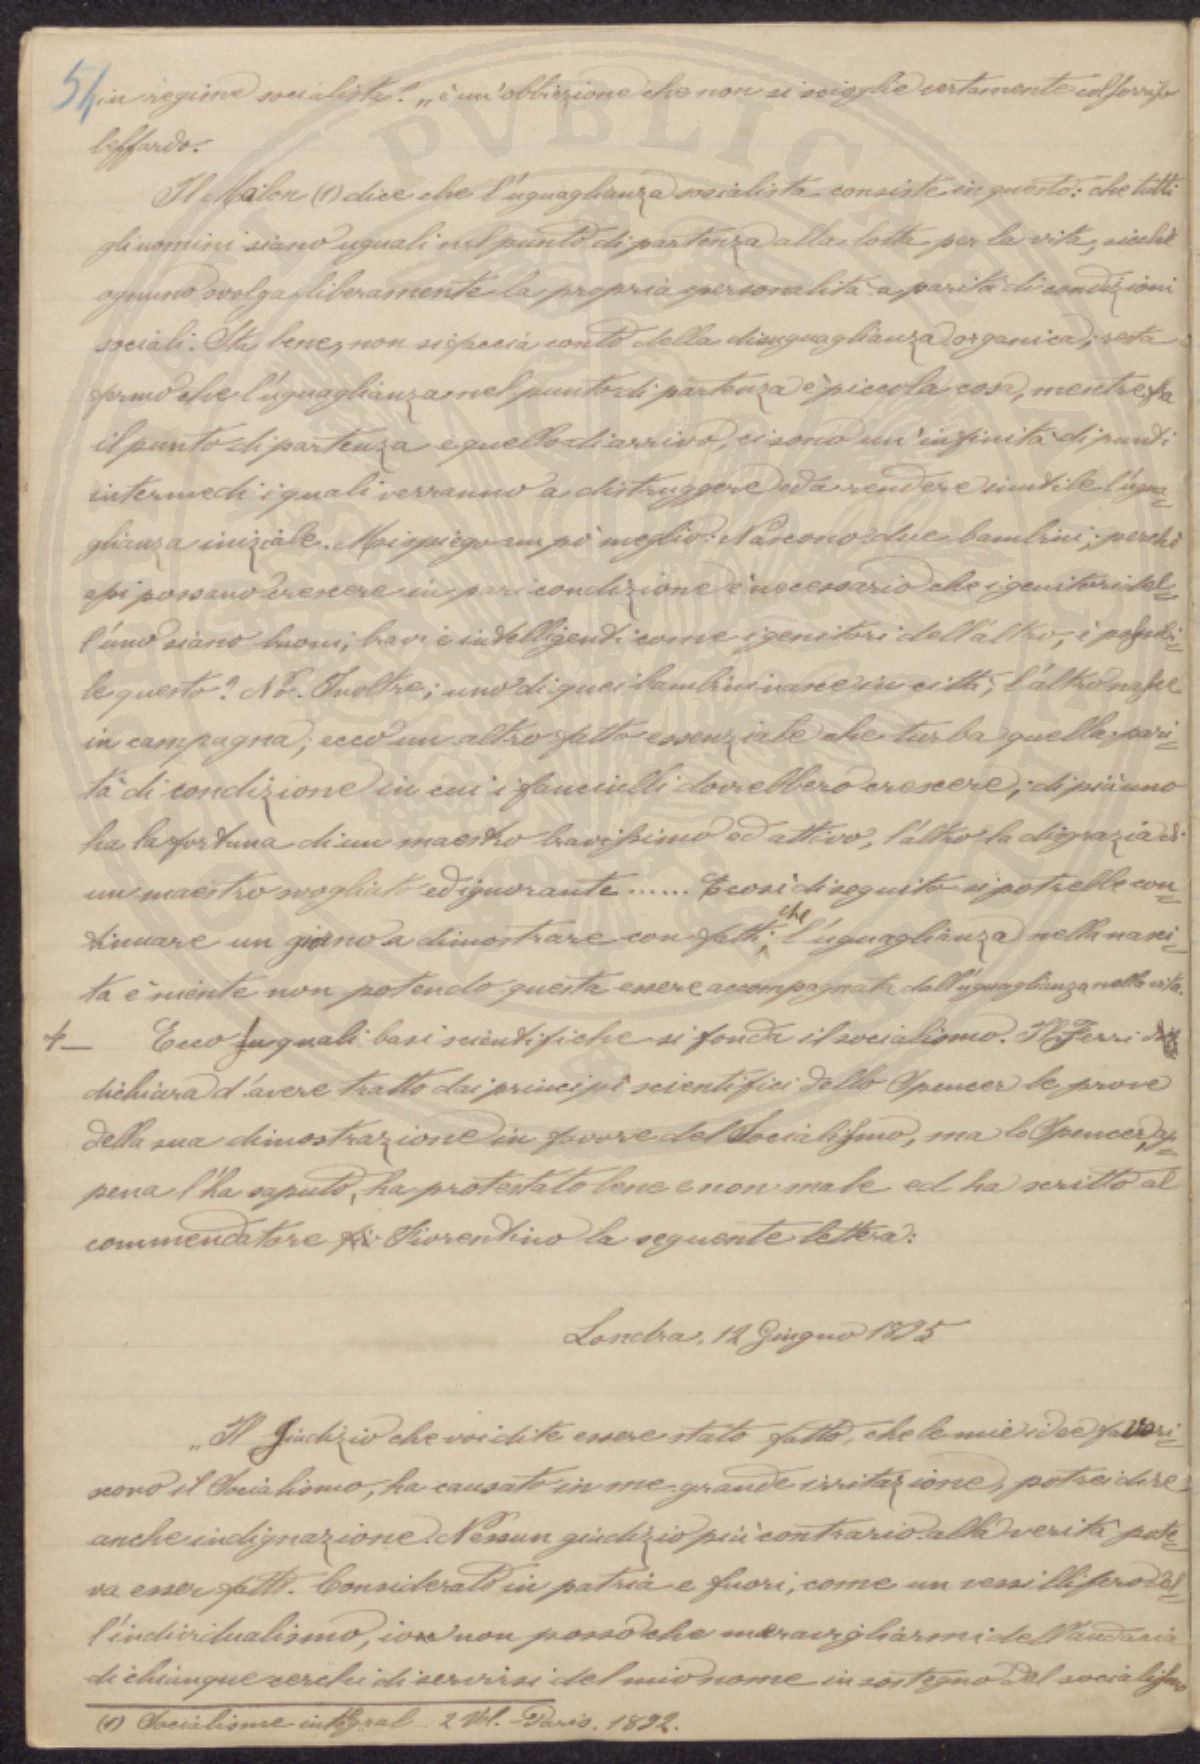 54
in regime socialista? „ è un'obbiezione che non si scioglie certamente col sorriso
beffardo.
Il Malon (1) dice che l'uguaglianza socialista consiste in questo: che tutti
gli uomini siano uguali nel punto di partenza alla lotta per la vita, sicchè
ognuno svolga liberamente la propria personalità a parità di condizioni
sociali. Sta bene, non si faccia conto della disuguaglianza organica; resta
fermo che l'uguaglianza nel punto di partenza è piccola cosa, mentre fra
il punto di partenza e quello di arrivo, ci sono un'infinità di punti
intermedi i quali verranno a distruggere ed a rendere inutile l'ugua=
glianza iniziale. Mi spiego un pò meglio: Nascono due bambini; perchè
essi possano crescere in pari condizione è necessario che i genitori del=
l'uno siano buoni, bravi e intelligenti come i genitori dell'altro; è possibi=
le questo? No. Inoltre; uno di quei bambini nasce in città, l'altro nasce
in campagna; ecco un altro fatto essenziale che turba quella pari=
tà di condizione in cui i fanciulli dovrebbero crescere; di più uno
ha la fortuna di un maestro bravissimo ed attivo, l'altro la disgrazia di
un maestro svogliato ed ignorante ...... E così di seguito si potrebbe con=
tinuare un giorno a dimostrare con fatti che l'uguaglianza nella nasci=
ta è niente non potendo questa essere accompagnata dall'uguaglianza nella vita.
4_ Ecco su quali basi scientifiche si fonda il socialismo. Il Ferri
dichiara d'avere tratto dai principi scientifici dello Spencer le prove
della sua dimostrazione in favore del Socialismo, ma lo Spencer, ap=
pena l'ha saputo, ha protestato bene e non male ed ha scritto al
commendatore Fiorentino la seguente lettera:
Londra, 12 Giugno 1895
„ Il giudizio che voi dite essere stato fatto, che le mie idee favori=
scono il Socialismo, ha causato in me grande irritazione, potrei dire
anche indignazione. Nessun giudizio più contrario alla verità pote=
va esser fatto. Considerato in patria e fuori, come un vessillifero del=
l'individualismo, io non posso che meravigliarmi dell'audacia
di chiunque cerchi di servirsi del mio nome in sostegno del socialismo
(1) Socialisme intégral - 2 Vol. - Paris. 1892.